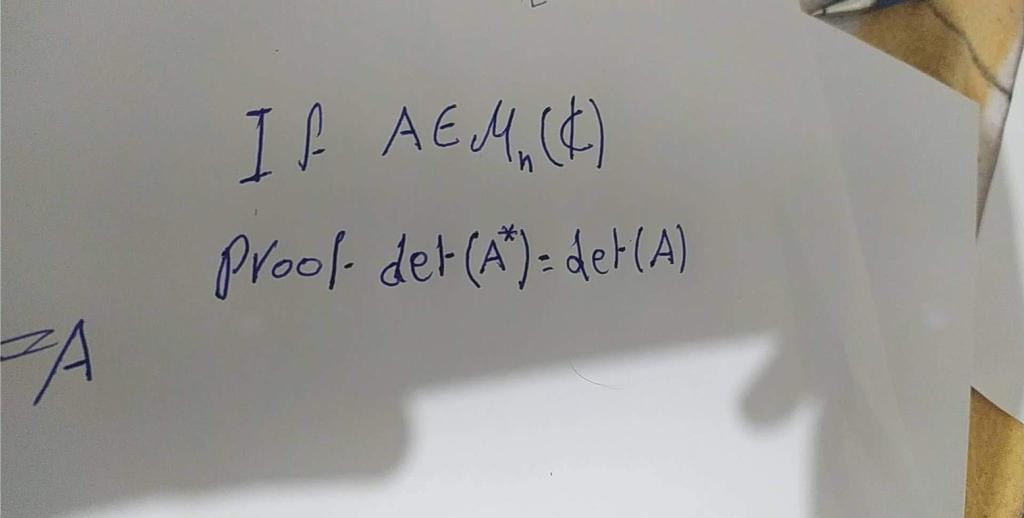 If A∈M_n(ℂ)
Proof. det(A*)=det(A)
=A